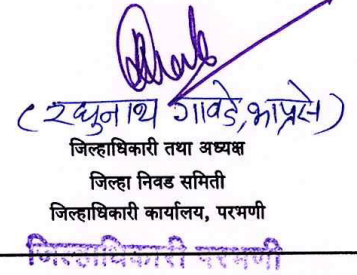 (रघुनाथ गावडे, भाप्रसे)
जिल्हाधिकारी तथा अध्यक्ष
जिल्हा निवड समिती
जिल्हाधिकारी कार्यालय, परभणी
जिल्हाधिकारी परभणी